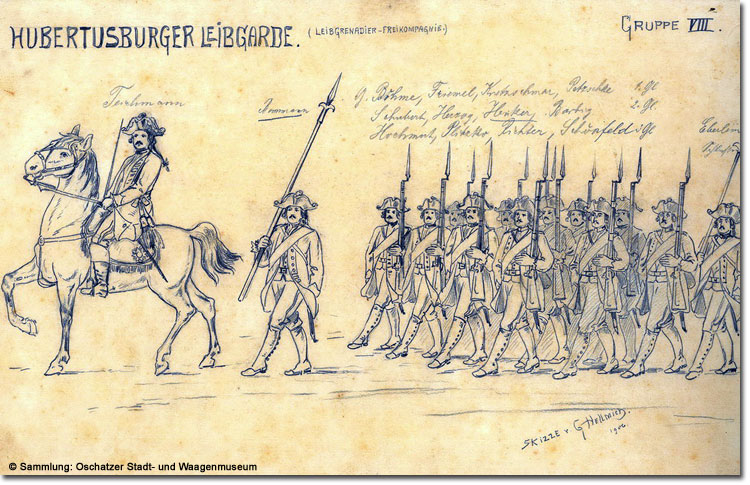 HUBERTUSBURGER LEIBGARDE. (LEIBGRENADIER-FREIKOMPAGNIE.) GRUPPE VIII.
Teichmann
Naumann
G. Böhme, Friemel, Kretzschmar, Petschke 1. Gl
Schubert, Herzog, Henker, Bartzg 2. Gl.
Hochmut, Richter, Schönfeld 3 Gl
Eberlein
SKIZZE v G Hellmich.
1906.
© Sammlung: Oschatzer Stadt- und Waagenmuseum